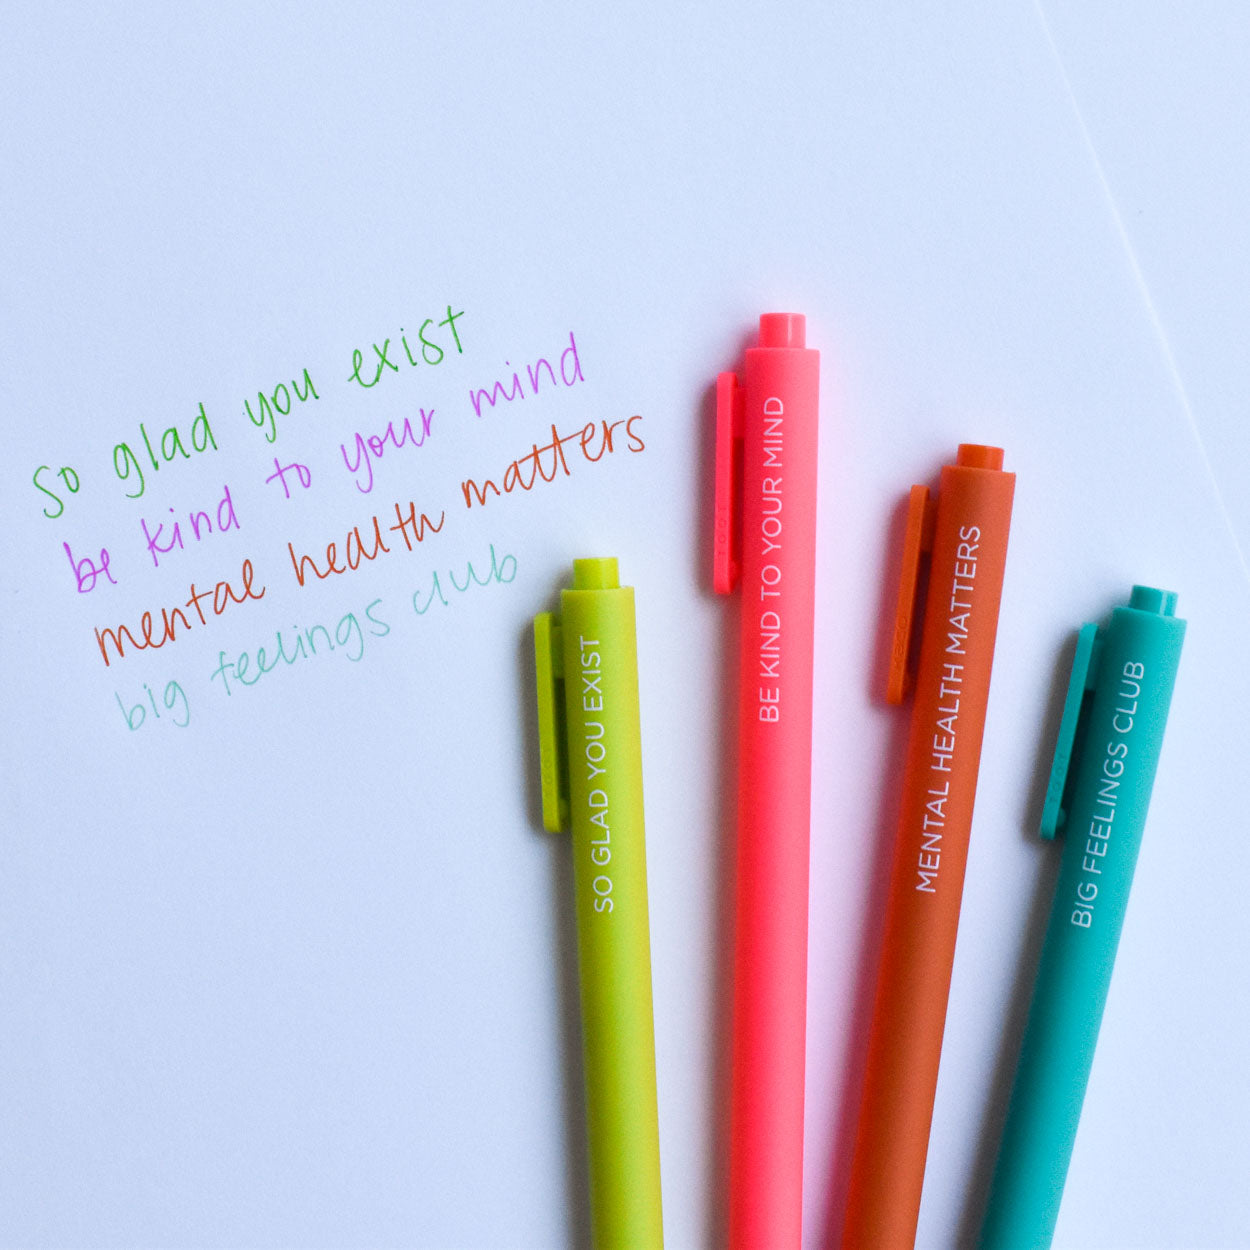 so glad you exist
be kind to your mind
mental health matters
big feelings club
SO GLAD YOU EXIST
BE KIND TO YOUR MIND
MENTAL HEALTH MATTERS
BIG FEELINGS CLUB